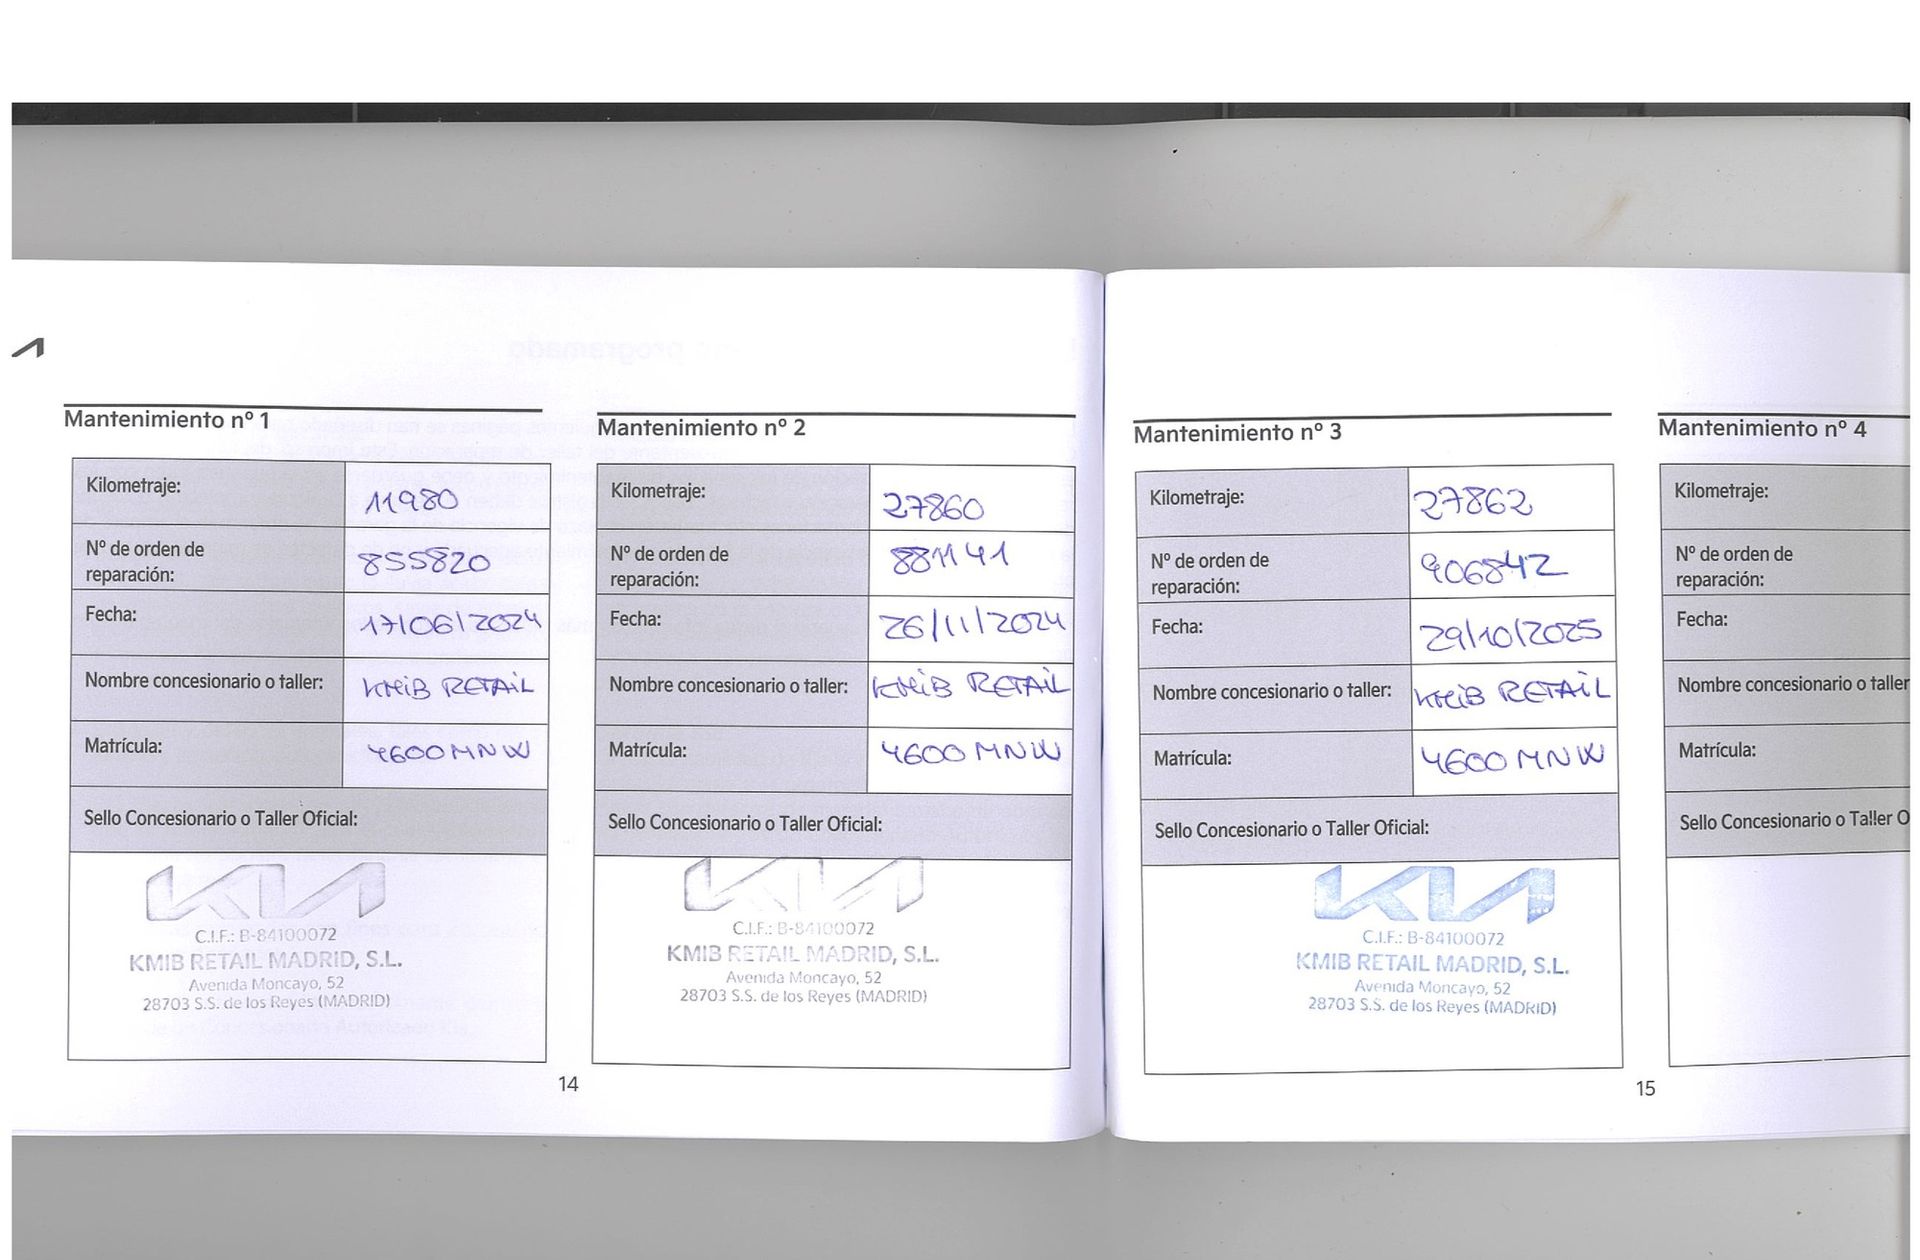 Mantenimiento nº 1
Kilometraje: 11980
Nº de orden de
reparación: 855820
Fecha: 17/06/2024
Nombre concesionario o taller: KMiB RETAiL
Matrícula: 4600MNW
Sello Concesionario o Taller Oficial:
KIA
C.I.F.: B-84100072
KMIB RETAIL MADRID, S.L.
Avenida Moncayo, 52
28703 S.S. de los Reyes (MADRID)
Mantenimiento nº 2
Kilometraje: 27860
Nº de orden de
reparación: 881141
Fecha: 26/11/2024
Nombre concesionario o taller: KMiB RETAiL
Matrícula: 4600 MNW
Sello Concesionario o Taller Oficial:
KIA
C.I.F.: B-84100072
KMIB RETAIL MADRID, S.L.
Avenida Moncayo, 52
28703 S.S. de los Reyes (MADRID)
14
Mantenimiento nº 3
Kilometraje: 27862
Nº de orden de
reparación: 906842
Fecha: 29/10/2025
Nombre concesionario o taller: KMiB RETAiL
Matrícula: 4600 MNW
Sello Concesionario o Taller Oficial:
KIA
C.I.F.: B-84100072
KMIB RETAIL MADRID, S.L.
Avenida Moncayo, 52
28703 S.S. de los Reyes (MADRID)
Mantenimiento nº 4
Kilometraje:
Nº de orden de
reparación:
Fecha:
Nombre concesionario o taller
Matrícula:
Sello Concesionario o Taller O
15